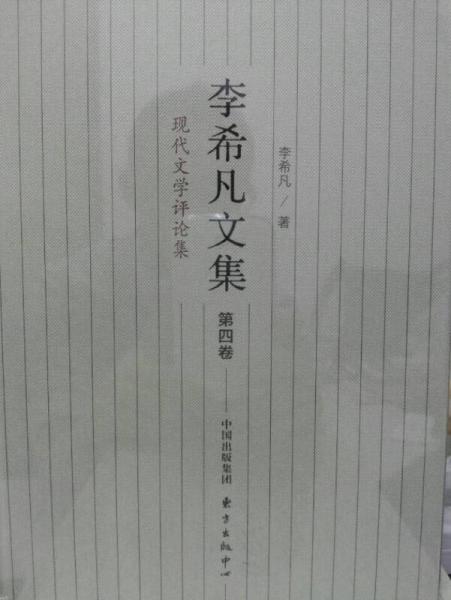 李希凡／著
李希凡文集
第四卷
现代文学评论集
中国出版集团
东方出版中心